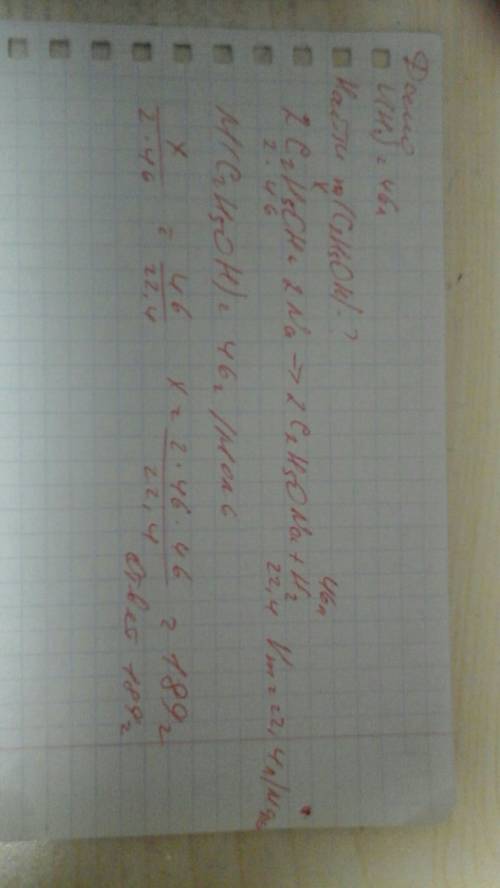 Дано
V(H₂) = 46л
Найти m(C₂H₅OH) - ?
x 46л
2C₂H₅OH + 2Na → 2C₂H₅ONa + H₂ Vm = 22,4л/моль
2·46 22,4
M(C₂H₅OH) = 46г/моль
x/2·46 = 46/22,4 x = 2·46·46/22,4 = 189г
Ответ 189г